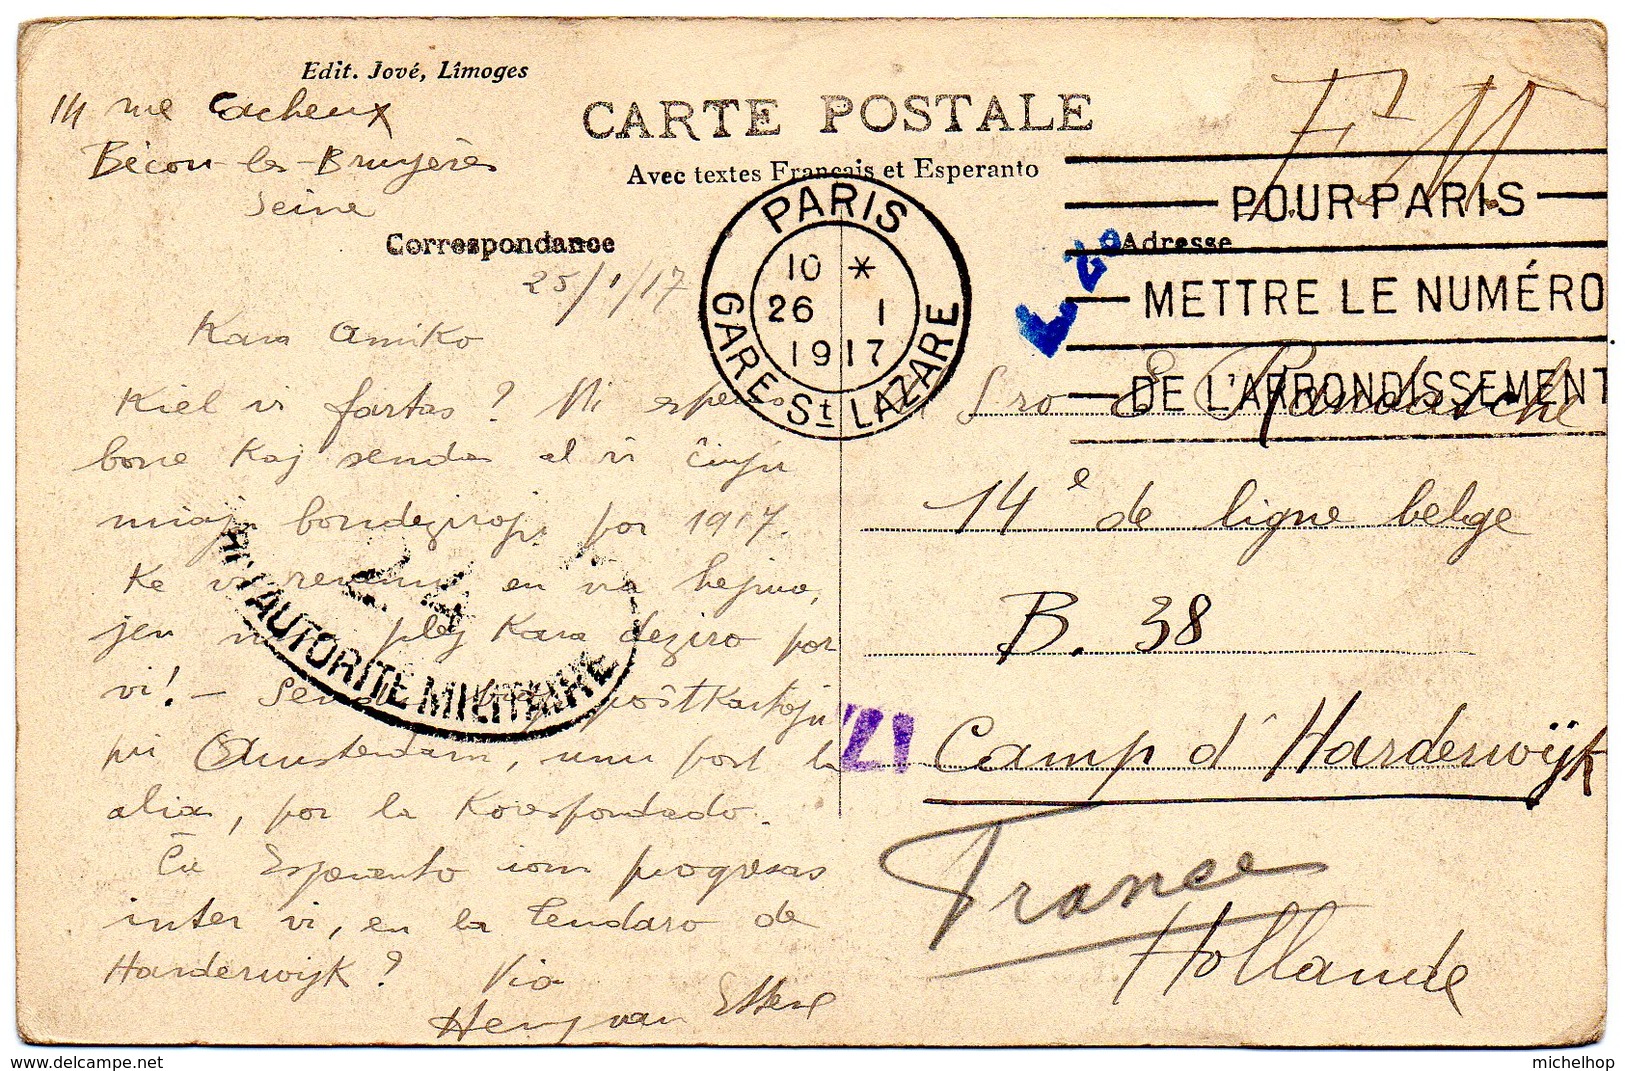 Edit. Jové, Limoges
14 rue Cacheux
Bécon-les-Bruyères
Seine
CARTE POSTALE
Avec textes Français et Esperanto
Correspondance
25/1/17
Kara Amiko
Kiel vi fartas? Mi esperas
bone Kaj sendas al vi ĉiujn
miajn bondezirojn por 1917.
Ke vi revenu en via hejmo,
jen mia plej Kara deziro por
vi! — Sendu poŝtKartojn
pri Amsterdam, unu post la
alia, por la Korespondado.
Ĉu Esperanto iom progresas
inter vi, en la Tendaro de
Harderwijk? Via
Henry van Essche
F.M.
PARIS
10 *
26 1
1917
GARE St LAZARE
POUR PARIS
METTRE LE NUMÉRO
DE L'ARRONDISSEMENT
Adresse
Sro E
14e de ligne belge
B. 38
Camp d'Harderwijk
France
Hollande
L'AUTORITE MILITAIRE
21
michelhop